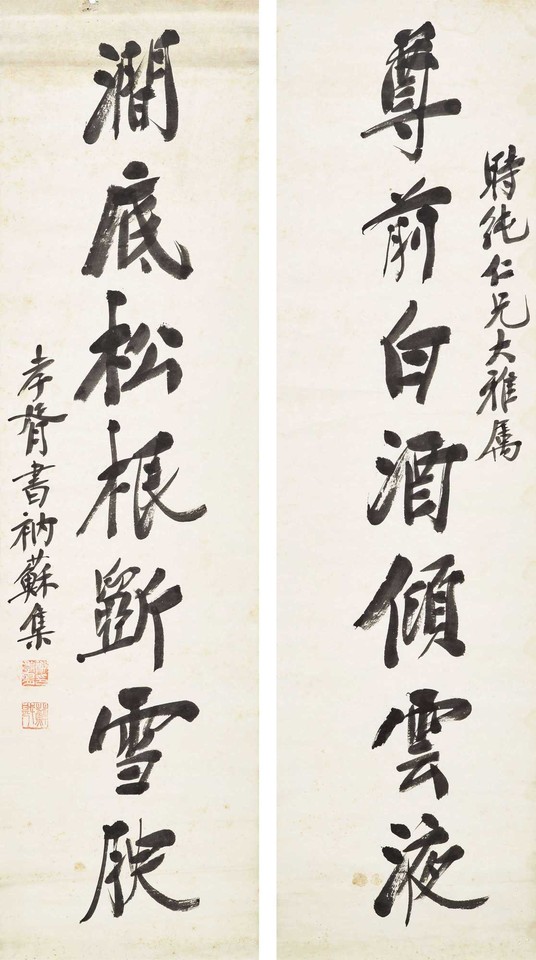 時純仁兄大雅属
尊前白酒傾雲液
澗底松根斸雪腴
孝胥書衲蘇集